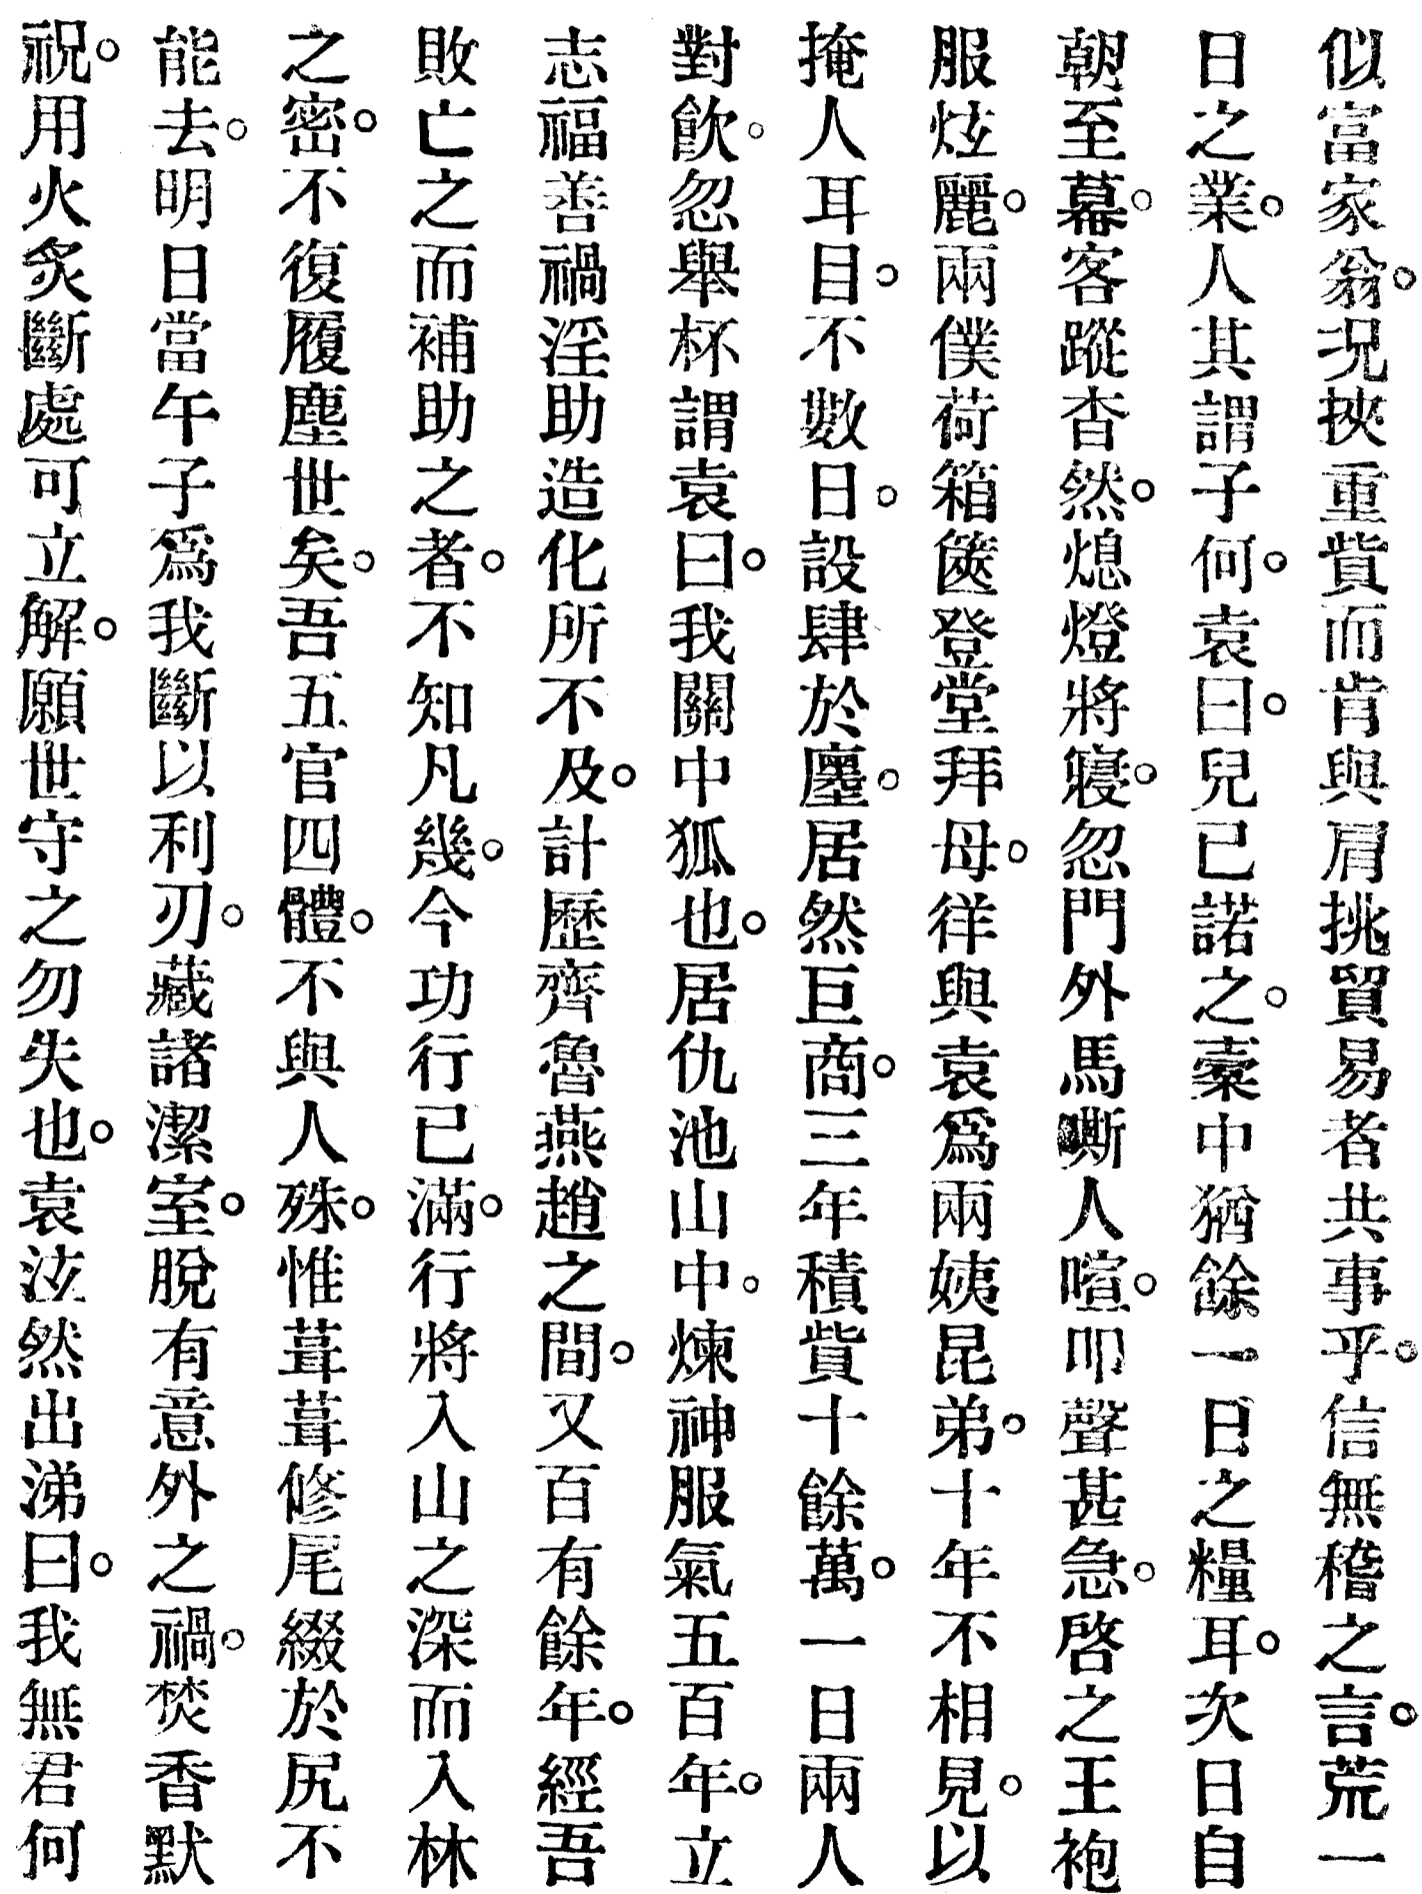 似富家翁。況挾重貲而肯與肩挑貿易者共事乎。信無稽之言。荒一
日之業。人其謂子何。袁曰。兒已諾之。橐中猶餘一日之糧耳。次日自
朝至幕。客蹤杳然。熄燈將寢。忽門外馬嘶人喧。叩聲甚急。啓之王袍
服炫麗。兩僕荷箱篋登堂拜母。徉與袁爲兩姨昆弟。十年不相見。以
掩人耳目。不數日。設肆於廛。居然巨商。三年積貲十餘萬。一日兩人
對飲。忽舉杯謂袁曰。我關中狐也。居仇池山中。煉神服氣五百年。立
志福善禍淫助造化所不及。計歷齊魯燕趙之間。又百有餘年。經吾
敗亡之而補助之者。不知凡幾。今功行已滿。行將入山之深而入林
之密。不復履塵世矣。吾五官四體。不與人殊。惟葺葺修尾綴於尻不
能去。明日當午子爲我斷以利刃。藏諸潔室。脫有意外之禍。焚香默
祝。用火炙斷處可立解。願世守之勿失也。袁泫然出涕曰。我無君何